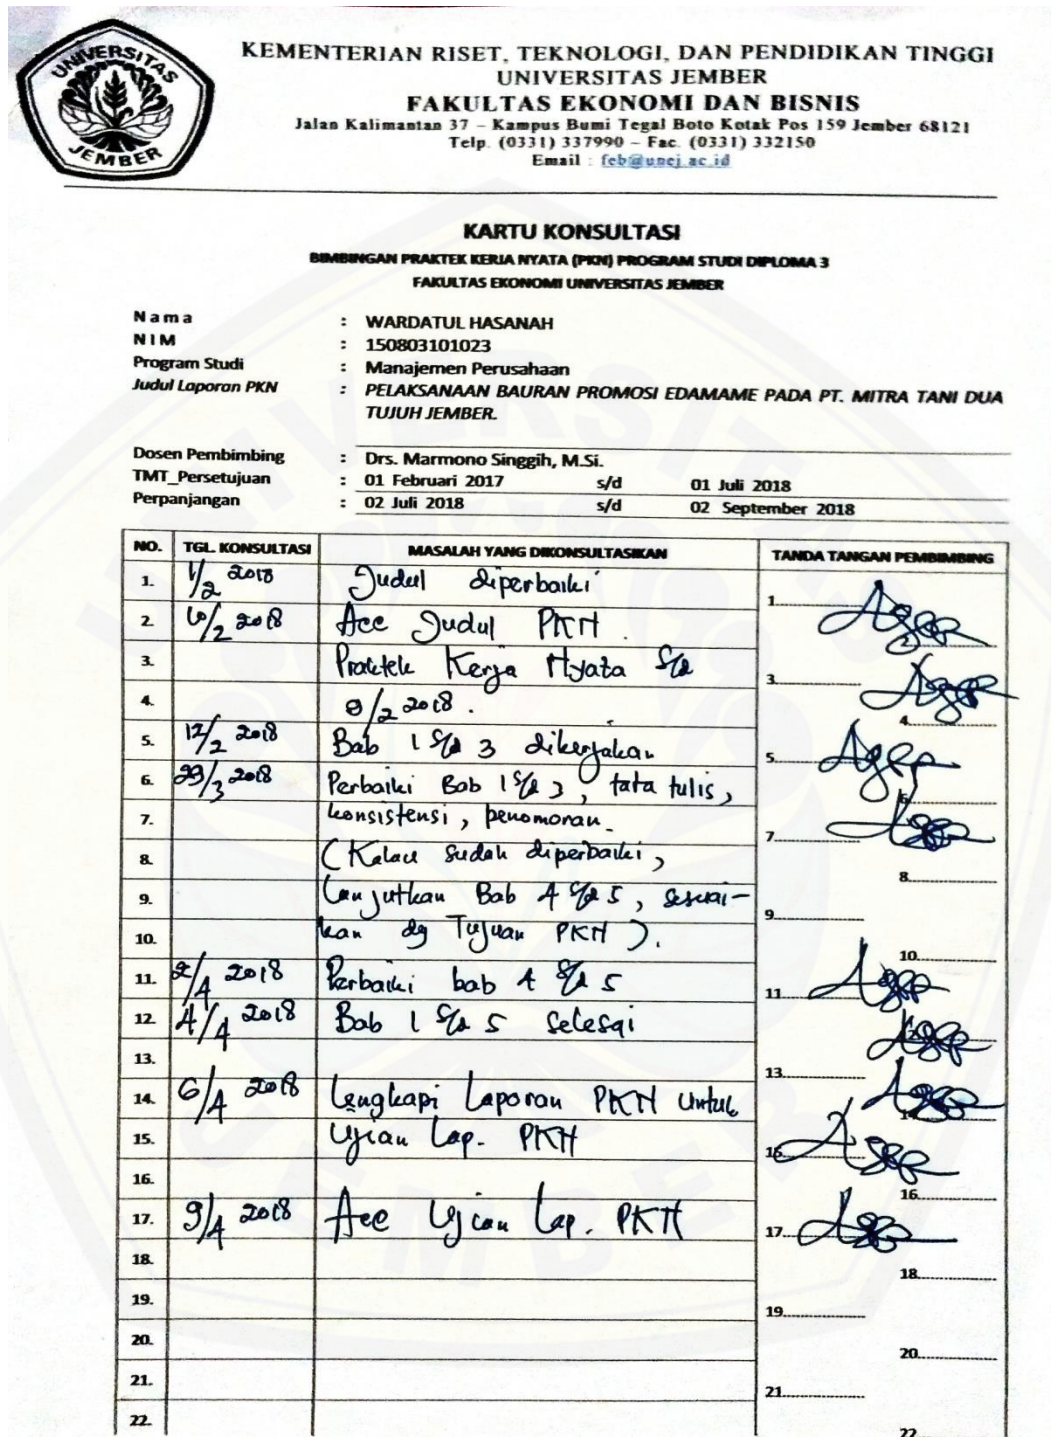 UNIVERSITAS
JEMBER
KEMENTERIAN RISET, TEKNOLOGI, DAN PENDIDIKAN TINGGI
UNIVERSITAS JEMBER
FAKULTAS EKONOMI DAN BISNIS
Jalan Kalimantan 37 – Kampus Bumi Tegal Boto Kotak Pos 159 Jember 68121
Telp. (0331) 337990 – Fac. (0331) 332150
Email : feb@unej.ac.id
KARTU KONSULTASI
BIMBINGAN PRAKTEK KERJA NYATA (PKN) PROGRAM STUDI DIPLOMA 3
FAKULTAS EKONOMI UNIVERSITAS JEMBER
Nama : WARDATUL HASANAH
NIM : 150803101023
Program Studi : Manajemen Perusahaan
Judul Laporan PKN : PELAKSANAAN BAURAN PROMOSI EDAMAME PADA PT. MITRA TANI DUA
TUJUH JEMBER.
Dosen Pembimbing : Drs. Marmono Singgih, M.Si.
TMT_Persetujuan : 01 Februari 2017 s/d 01 Juli 2018
Perpanjangan : 02 Juli 2018 s/d 02 September 2018
NO. TGL. KONSULTASI MASALAH YANG DIKONSULTASIKAN TANDA TANGAN PEMBIMBING
1. 1/2 2018 Judul diperbaiki 1
2. 2018 Acc Judul PKN. 2
3. Praktek Kerja Nyata s/d 3
4. 8/2 2018. 4
5. 12/2 2018 Bab 1 s/d 3 dikerjakan 5
6. 29/3 2018 Perbaiki Bab 1 s/d 3, tata tulis, 6
7. konsistensi, penomoran. 7
8. (Kalau sudah diperbaiki, 8
9. Lanjutkan Bab 4 s/d 5, sesuai- 9
10. kan dg Tujuan PKN). 10
11. 2/4 2018 Perbaiki bab 4 s/d 5 11
12. 4/4 2018 Bab 1 s/d 5 selesai 12
13. 13
14. 6/4 2018 Lengkapi Laporan PKN untuk 14
15. Ujian Lap. PKN 15
16. 16
17. 9/4 2018 Acc Ujian Lap. PKN 17
18. 18
19. 19
20. 20
21. 21
22. 22